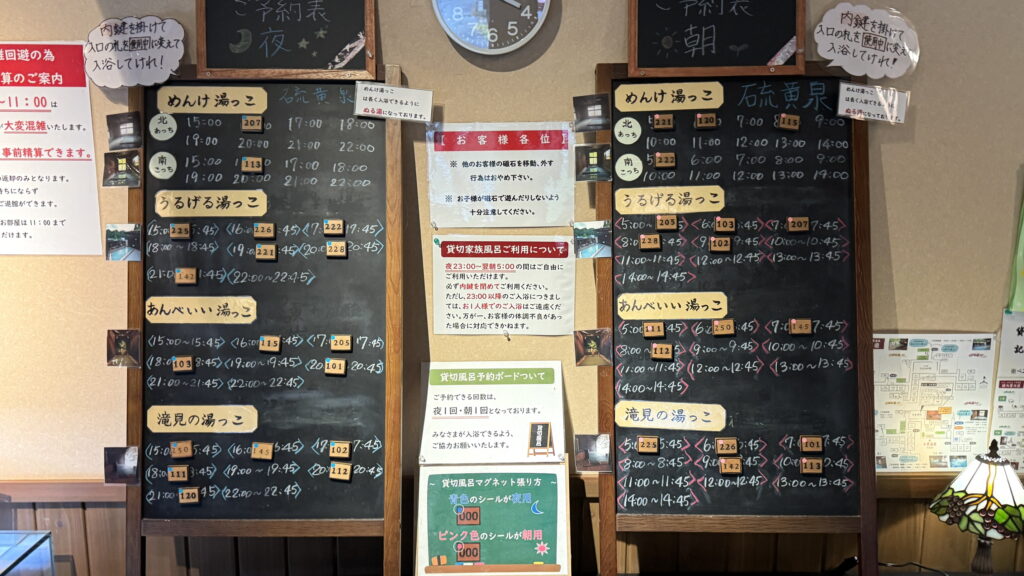 ご予約表
夜
ご予約表
朝
内鍵を掛けて
入口の札を使用中に変えて
入浴してけれ!
内鍵を掛けて
入口の札を使用中に変えて
入浴してけれ!
雑回避の為
算のご案内
~11:00は
大変混雑いたします。
事前精算できます。
返却のみとなります。
待ちにならず
ご退館ができます。
お部屋は11:00まで
だけます。
めんけ湯っこ
硫黄泉
めんけ湯っこ
は長く入浴できるように
ぬる湯になっております。
北
あっち
15:00 207 17:00 18:00
19:00 20:00 21:00 22:00
南
こっち
15:00 113 17:00 18:00
19:00 20:00 21:00 22:00
うるげる湯っこ
225 226 222
〈18:00~18:45〉 221 228
142 〈22:00~22:45〉
あんべいい湯っこ
〈15:00~15:45〉 115 205
103 〈19:00~19:45〉 101
〈21:00~21:45〉 〈22:00~22:45〉
滝見の湯っこ
250 145 102
111 〈19:00~19:45〉 212
120 〈22:00~22:45〉
【お客様各位】
※ 他のお客様の磁石を移動、外す
行為はおやめ下さい。
※ お子様が磁石で遊んだりしないよう
十分注意してください。
貸切家族風呂ご利用について
夜23:00~翌朝5:00の間はご自由に
ご利用いただけます。
必ず内鍵を閉めてご利用ください。
ただし、23:00以降のご入浴につきまし
ては、お1人様でのご入浴はご遠慮くだ
さい。万が一、お客様の体調不良があっ
た場合に対応できかねます。
貸切風呂予約ボードついて
ご予約できる回数は、
夜1回・朝1回となっております。
みなさまが入浴できるよう、
ご協力お願いいたします。
~ 貸切風呂マグネット張り方 ~
青色のシールが夜用
000
ピンク色のシールが朝用
000
めんけ湯っこ
硫黄泉
めんけ湯っこ
は長く入浴できるように
ぬる湯になっております。
北
あっち
221 120 115 9:00
10:00 11:00 12:00 13:00 14:00
南
こっち
222 6:00 7:00 8:00 9:00
10:00 11:00 12:00 13:00 14:00
うるげる湯っこ
205 103 207
228 102 〈10:00~10:45〉
〈11:00~11:45〉 〈12:00~12:45〉 〈13:00~13:45〉
〈14:00~14:45〉
あんべいい湯っこ
111 250 145
112 〈9:00~9:45〉 〈10:00~10:45〉
〈11:00~11:45〉 〈12:00~12:45〉 〈13:00~13:45〉
〈14:00~14:45〉
滝見の湯っこ
225 226 101
〈8:00~8:45〉 142 113
〈11:00~11:45〉 〈12:00~12:45〉 〈13:00~13:45〉
〈14:00~14:45〉